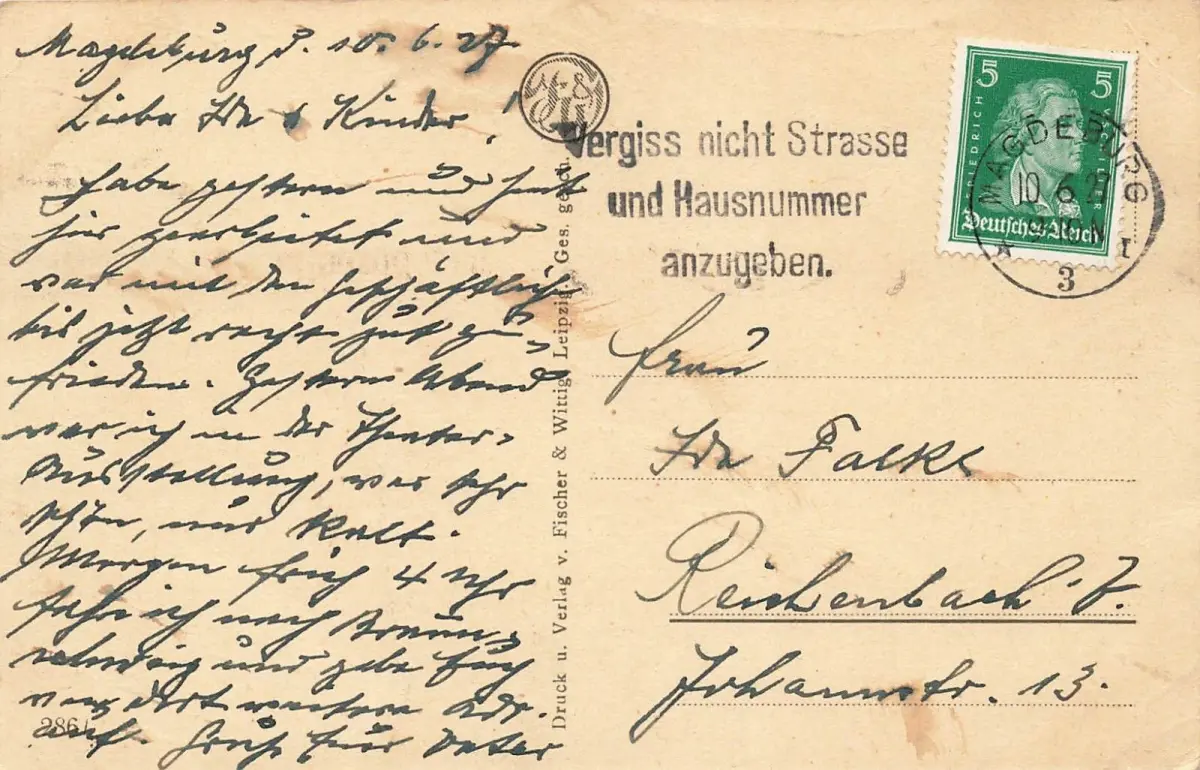 Magdeburg d. 10.6.27
Liebe Ida & Kinder!
habe gestern und heut
hier gearbeitet und
war mit den Geschäftlich
bis jetzt recht gut zu-
frieden. Gestern Abend
war ich in der Theater-
Ausstellung, war sehr
schön, nur kalt.
Morgen früh 4 Uhr
fahr ich nach Braun-
schweig und gebe Euch
von dort weitere Adr.
auf. Gruß Eur Vater
2864
Druck u. Verlag v. Fischer & Wittig, Leipzig. Ges. gesch.
Vergiss nicht Strasse
und Hausnummer
anzugeben.
5 5
FRIEDRICH
Deutsches Reich
MAGDEBURG
10.6.27
N
* I
3
Frau
Ida Falke
Reichenbach V.
Johannstr. 13.